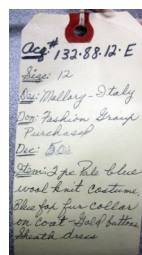 Acq# 132.88.12.E
Size: 12
Des: Mallory-Italy
Don: Fashion Group
Purchased
Dec: 50s
Item: 2 pc Pale blue
wool knit costume
Blue fox fur collar
on coat-Gold buttons
Sheath dress